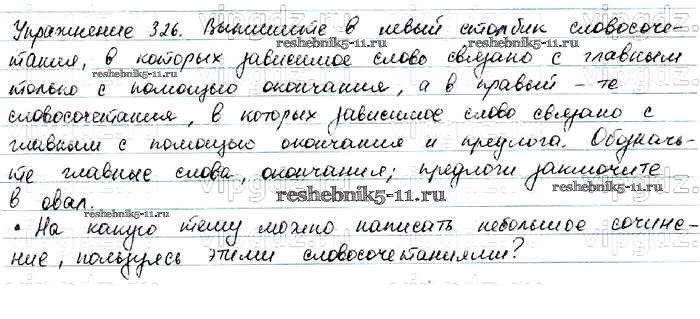 Упражнение 326. Выпишите в левый столбик словосоче-
тания, в которых зависимое слово связано с главным
только с помощью окончания, а в правый - те
словосочетания, в которых зависимое слово связано с
главным с помощью окончания и предлога. Обозначь-
те главные слова, окончания; предлоги заключите
в овал.
• На какую тему можно написать небольшое сочине-
ние, пользуясь этими словосочетаниями?
reshebnik5-11.ru
reshebnik5-11.ru
reshebnik5-11.ru
reshebnik5-11.ru
reshebnik5-11.ru